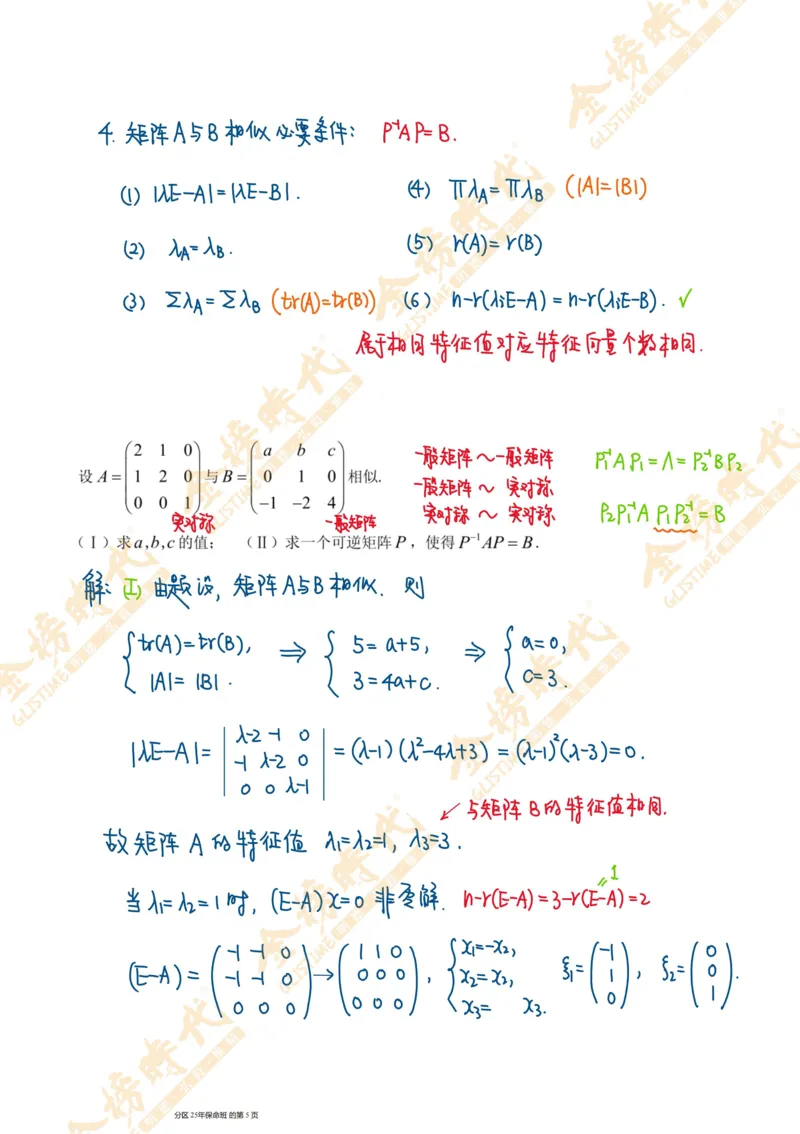 4. 矩阵A与B相似必要条件: P⁻¹AP=B.
(1) |λE-A|=|λE-B|. (4) ∏λ_A=∏λ_B (|A|=|B|)
(2) λ_A=λ_B. (5) r(A)=r(B)
(3) Σλ_A=Σλ_B (tr(A)=tr(B)) (6) n-r(λᵢE-A)=n-r(λᵢE-B). ✓
属于相同特征值对应特征向量个数相同.
设A=(2 1 0; 1 2 0; 0 0 1)与B=(a b c; 0 1 0; -1 -2 4)相似.
实对称 一般矩阵
一般矩阵~一般矩阵
一般矩阵~实对称
实对称~实对称
P₁⁻¹AP₁=Λ=P₂⁻¹BP₂
P₂P₁⁻¹AP₁P₂⁻¹=B
(Ⅰ)求a,b,c的值; (Ⅱ)求一个可逆矩阵P,使得P⁻¹AP=B.
解: (I) 由题设, 矩阵A与B相似. 则
{tr(A)=tr(B), ⇒ {5=a+5, ⇒ {a=0,
|A|=|B|. 3=4a+c. c=3.
|λE-A|=|λ-2 -1 0; -1 λ-2 0; 0 0 λ-1|=(λ-1)(λ²-4λ+3)=(λ-1)²(λ-3)=0.
↙与矩阵B的特征值相同.
故矩阵A的特征值 λ₁=λ₂=1, λ₃=3.
当λ₁=λ₂=1时, (E-A)x=0 非零解. n-r(E-A)=3-r(E-A)=2
1
(E-A)=(-1 -1 0; -1 -1 0; 0 0 0)→(1 1 0; 0 0 0; 0 0 0), {x₁=-x₂, x₂=x₂, x₃= x₃. ξ₁=(-1; 1; 0), ξ₂=(0; 0; 1).
分区 25年保命班 的第 5 页
金榜時代
GLISTIME